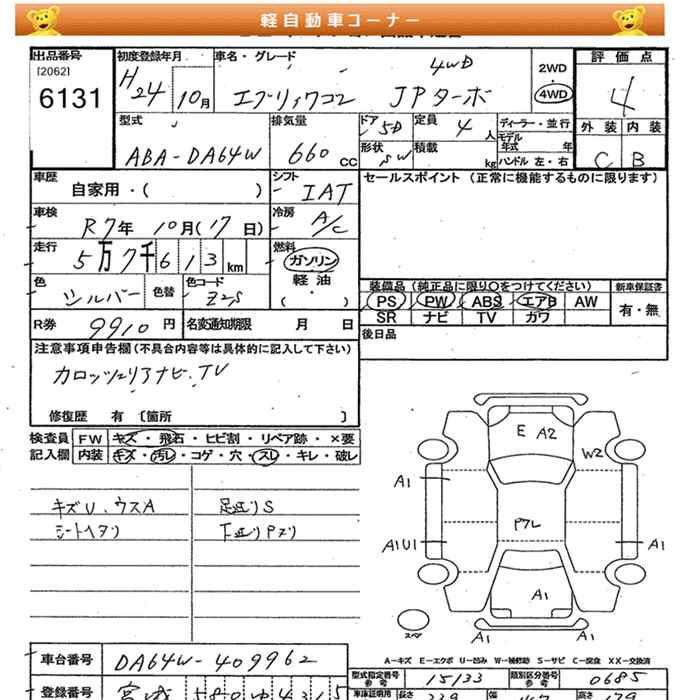 軽自動車コーナー
出品番号 初度登録年月 車名・グレード 評価点
[2062] 6131 H24 10月 エブリィワゴン JPターボ 4WD 2WD・4WD 4
型式 排気量 ドア 5D 定員 4人 ディーラー・並行 外装 内装
モデル年式 年
ABA-DA64W 660cc 形状 SW 積載 kg ハンドル 左・右 C B
車歴 自家用・( ) シフト IAT セールスポイント (正常に機能するものに限ります)
車検 R7年 10月(17日) 冷房 A/C
走行 5万7千613km 燃料 ガソリン
軽油
色 シルバー 色替 色コード Z2S ( ・ )
装備品(純正品に限り○をつけてください) 新車保証書
PS PW ABS エアB AW 有・無
SR ナビ TV カワ
R券 9910円 名変通知期限 月 日 後日品
注意事項申告欄(不具合内容等は具体的に記入して下さい)
カロッツェリアナビ.TV
修復歴 有 〔箇所 〕
検査員 FW キズ・飛石・ヒビ割・リペア跡・×要
記入欄 内装 キズ・汚レ・コゲ・穴・スレ・キレ・破レ
キズU、ウスA 足廻りS
シートヘタリ 下廻りPヌリ
E A2
W2
A1
P7L
A1U1 A1
A1
スペア A1 A1
A-キズ E-エクボ U-凹み W-補修跡 S-サビ C-腐食 XX-交換済
車台番号 DA64W-409962
型式指定番号 参考 15133 類別区分番号 参考 0685
登録番号 宮城 580
車庫証明用 参考 長さ 339 幅 147 高さ 179